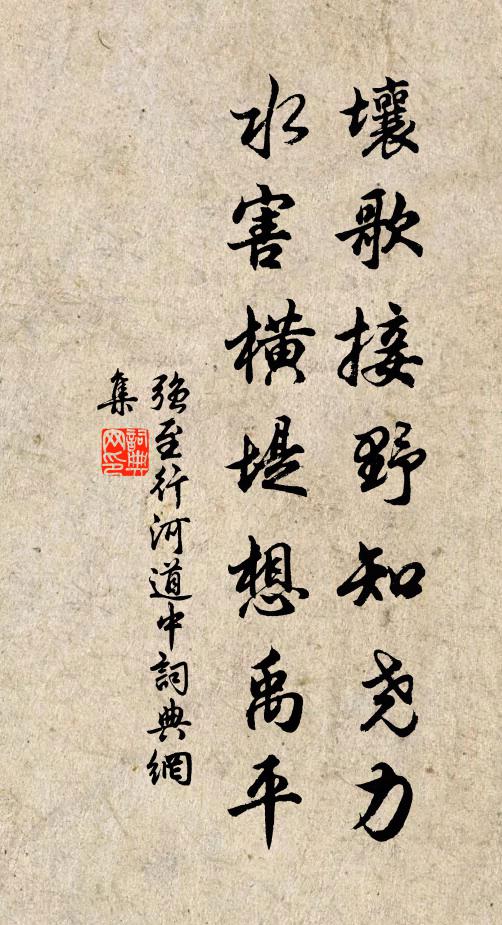 壤歌接野知尧力
水害横堤想禹平
强至行河道中詞典網
集
詞典
网印